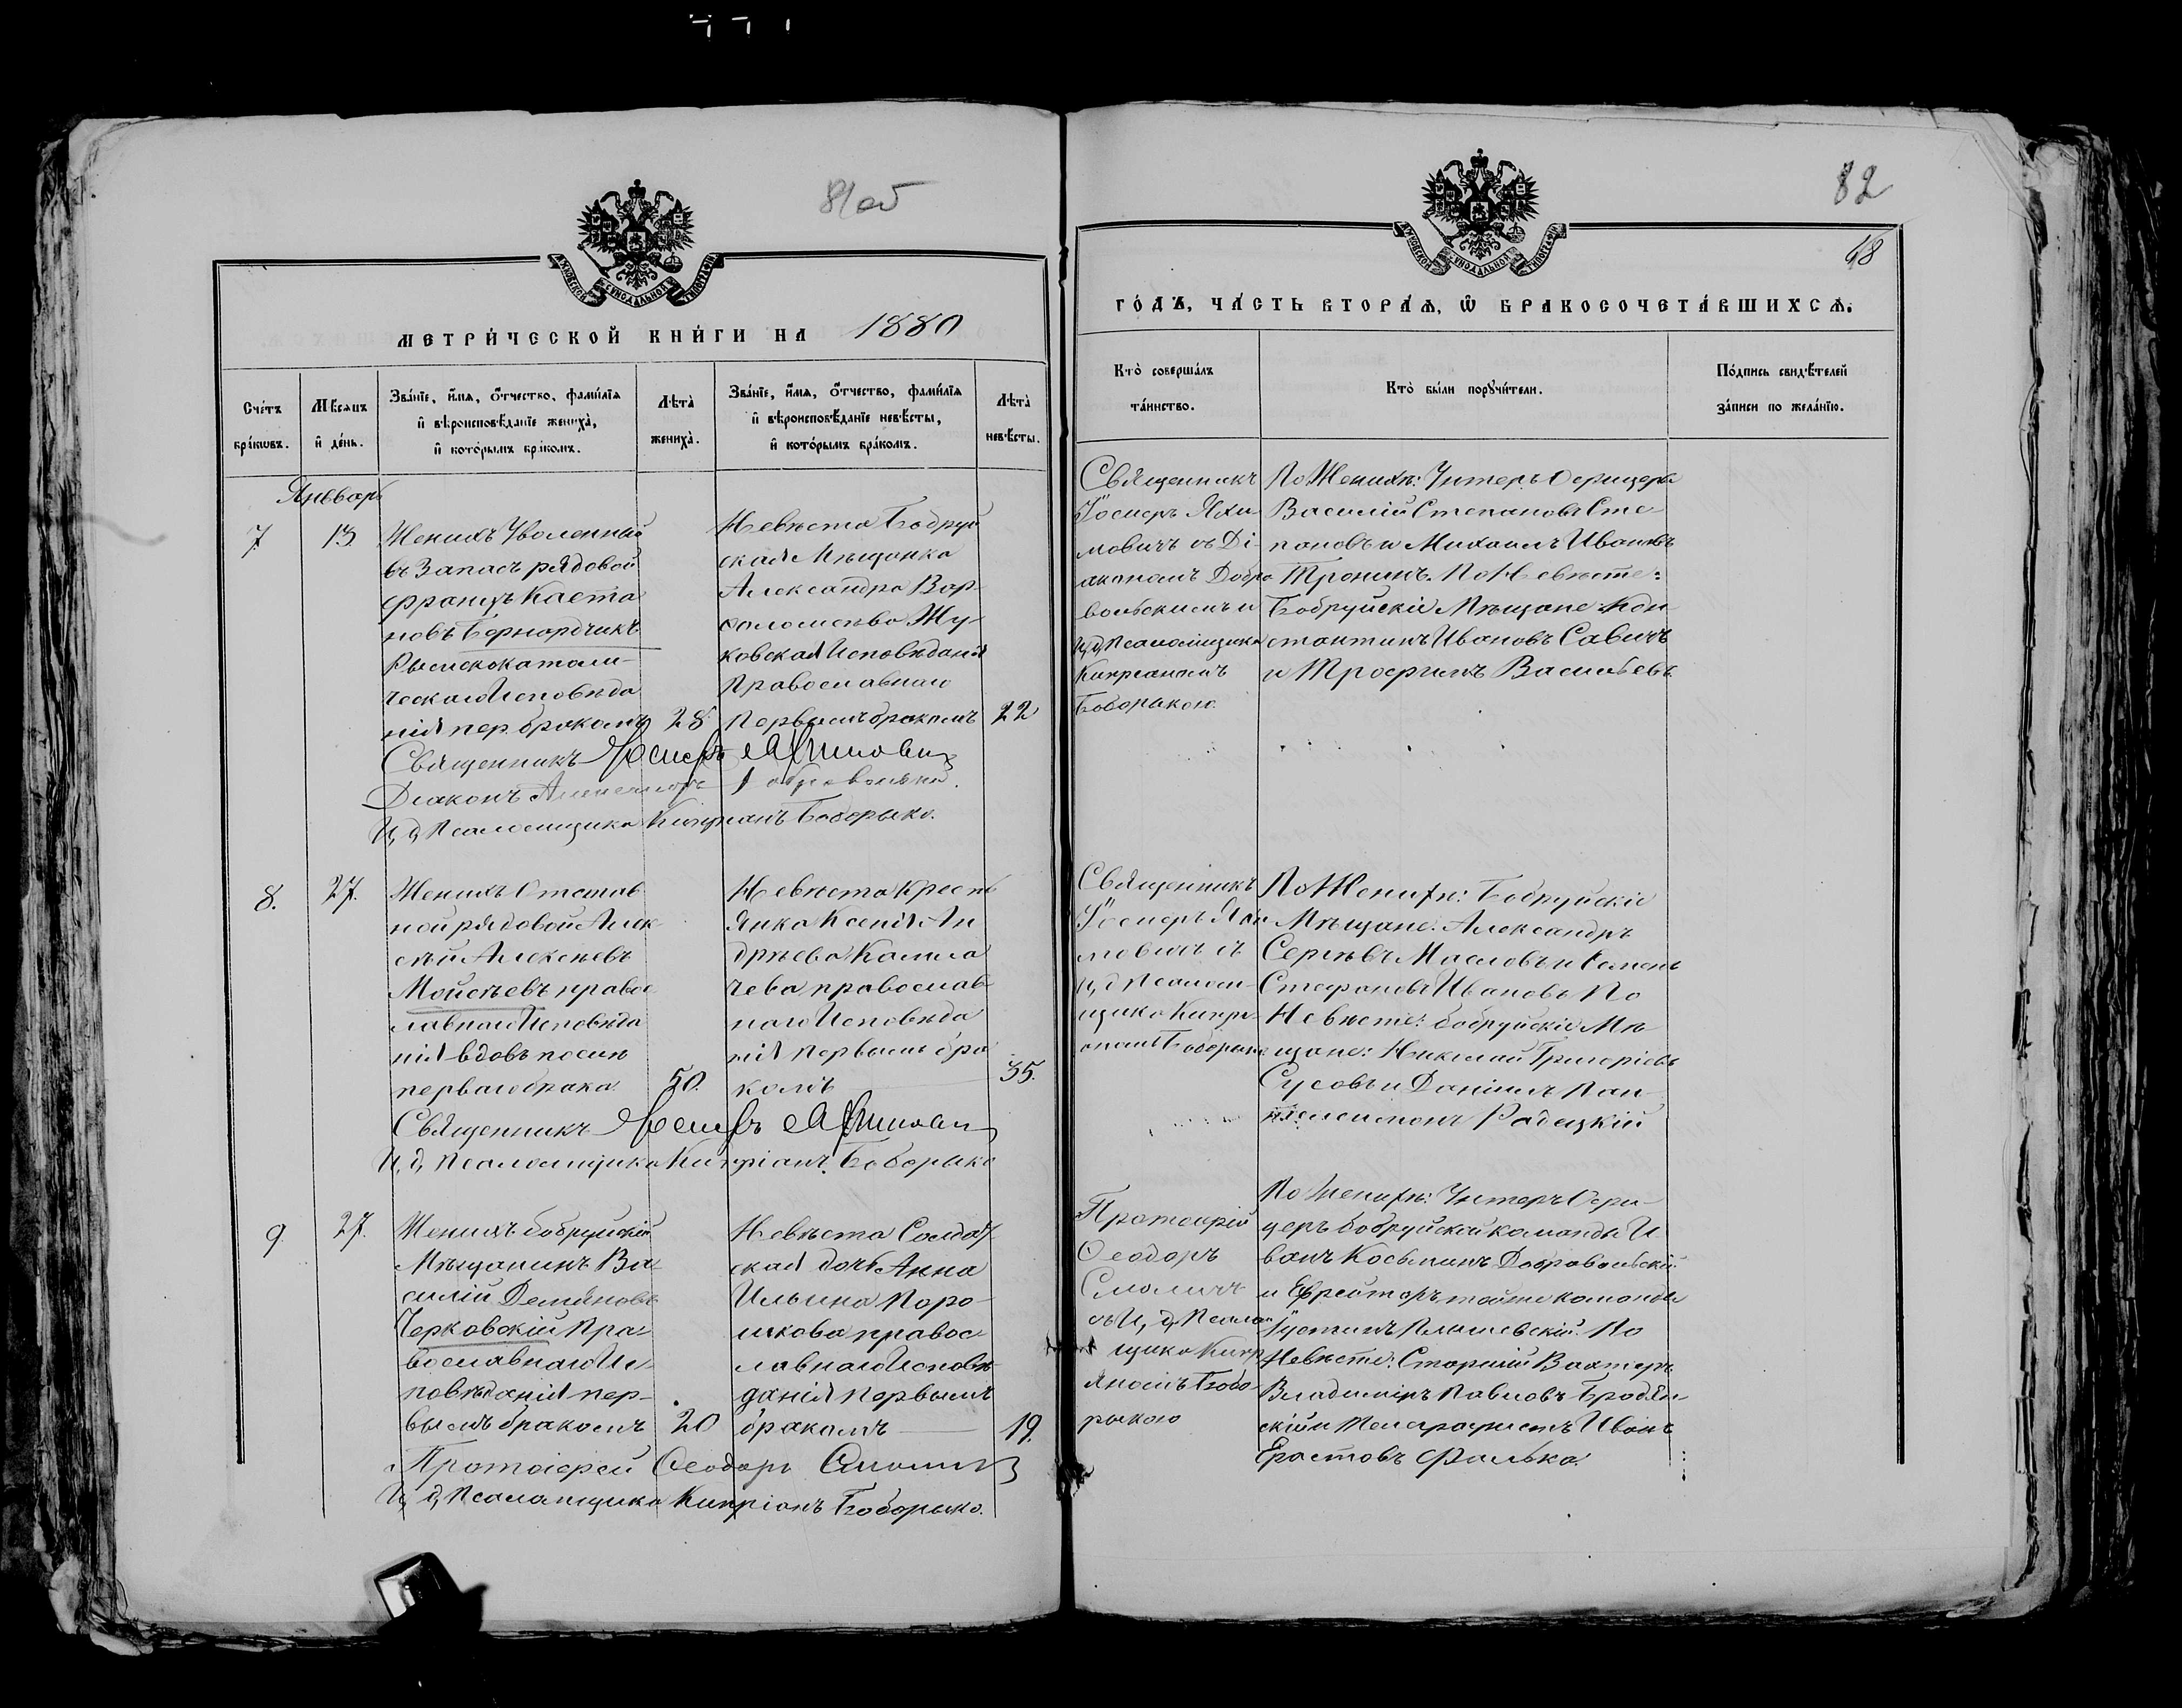 81об
МЕТРИ́ЧЕСКОЙ КНИ́ГИ НА 1880
Сче́тъ бра́ковъ.
Мѣ́сяцъ и де́нь.
Зва́нїе, и҆́мя, ѻ҆́тчество, фами́лїя и҆ вѣроисповѣ́данїе жениха̀, и҆ кото́рымъ бра́комъ.
Лѣ́та жениха̀.
Зва́нїе, и҆́мя, ѻ҆́тчество, фами́лїя и҆ вѣроисповѣ́данїе невѣ́сты, и҆ кото́рымъ бра́комъ.
Лѣ́та невѣ́сты.
Январь
7 13 Женихъ Уволенный
въ Запасъ рядовой
Францъ Каета
новъ Бернардчикъ
Римскокатоли-
ческаго Исповѣда
нія пер. бракомъ 28
Невѣста Бобруй
ская Мѣщанка
Александра Вар-
ѳоломеева Жу-
ковская Исповѣданія
Православнаго
Первымъ бракомъ 22
Священникъ Іосифъ Яхимовичъ
Діаконъ Добровольскій.
И, д, Псаломщика Кипріанъ Боборыко.
8. 27. Женихъ Отстав
ной рядовой Алек
сѣй Алексѣевъ
Мойсѣевъ правос
лавнаго Исповѣда
нія вдовъ послѣ
перваго брака 50.
Невѣста Кресть
янка Ксенія Ан
дрѣева Калма
чева православ
наго Исповѣда
нія первымъ бра
комъ 35.
Священникъ Іосифъ Яхимовичъ
И, д, Псаломщика Кипріанъ Боборыко
9. 27. Женихъ бобруйскій
Мѣщанинъ Ва
силій Демьяновъ
Черковскій Пра
вославнаго Ис
повѣданія пер-
вымъ бракомъ 20
Невѣста Солдат
ская дочь Анна
Ильина Поро-
шкова правос
лавнаго Исповѣ
данія Первымъ
бракомъ 19.
Протоіерей Ѳеодоръ Смоличъ
И, д, Псаломщика Кипріанъ Боборыко.
82
48
ГО́ДЪ, ЧА́СТЬ ВТОРА́Я, Ѽ БРАКОСОЧЕТА́ВШИХСЯ.
Кто̀ соверша́лъ та́инство.
Кто̀ бы́ли порꙋчи́тели.
По́дпись свидѣ́телей за́писи по жела́нїю.
Священникъ
Іосифъ Яхи-
мовичъ съ Ді-
акономъ Добро
вольскимъ и
И, д, Псаломщика
Кипріаномъ
Боборыкою.
По Женихѣ: Унтеръ Офицеры
Василій Степановъ Сте-
пановъ и Михаилъ Ивановъ
Тронинъ. По Невѣсте:
Бобруйскіе Мѣщане Кон-
стантинъ Ивановъ Савичъ
и Трофимъ Васильевъ
Священникъ
Іосифъ Яхи
мовичъ съ
И, д Псалом-
щика Кипрі-
аномъ Боборыко
По Женихѣ: Бобруйскіе
Мѣщане: Александръ
Сергѣевъ Масловъ и Семенъ
Стефановъ Ивановъ По
Невѣсте: бобруйскіе Мѣ-
щане: Николай Григоріевъ
Сусовъ и Даніилъ Пан-
телеимонъ Радецкій
Протоіерей
Ѳеодоръ
Смоличъ
съ И, д, Псалом
щика Кипр
яномъ Бобо-
рыкою
По Женихѣ: Унтеръ Офи-
церъ бобруйской команды И
ванъ Косьминъ Добровольскій
и Ефрейторъ тойже команды
Іустинъ Плышевскій. По
Невѣсте: Старшій Вахтеръ
Владиміръ Павловъ Бродян-
скій и Телеграфистъ Иванъ
Ерастовъ Фалько.